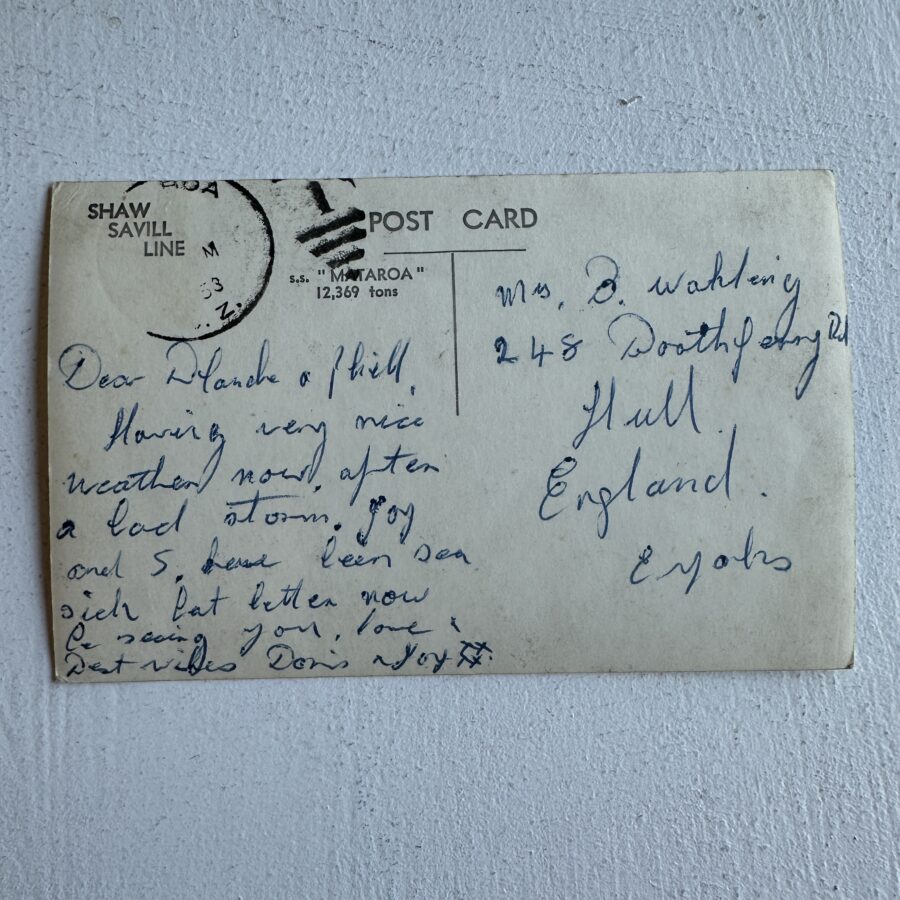 SHAW
SAVILL
LINE
M
53
N.Z.
POST CARD
s.s. "MATAROA"
12,369 tons
Mrs. B. Wakling
248 Boothferry Rd
Hull.
England.
E yorks
Dear Blanche & Phill,
Having very nice
weather now, after
a bad storm. Joy
and S. have been sea
sick but better now
be seeing you. love &
Best wishes Doris & Joy XX.